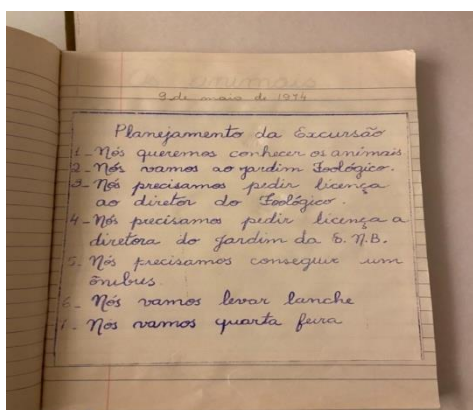 9 de maio de 1974
Planejamento da Excursão
1 - Nós queremos conhecer os animais
2 - Nós vamos ao jardim Zoológico.
3 - Nós precisamos pedir licença
ao diretor do Zoológico.
4 - Nós precisamos pedir licença a
diretora do Jardim da E. N. B.
5. Nós precisamos conseguir um
ônibus.
6 - Nós vamos levar lanche
7 - Nós vamos quarta feira